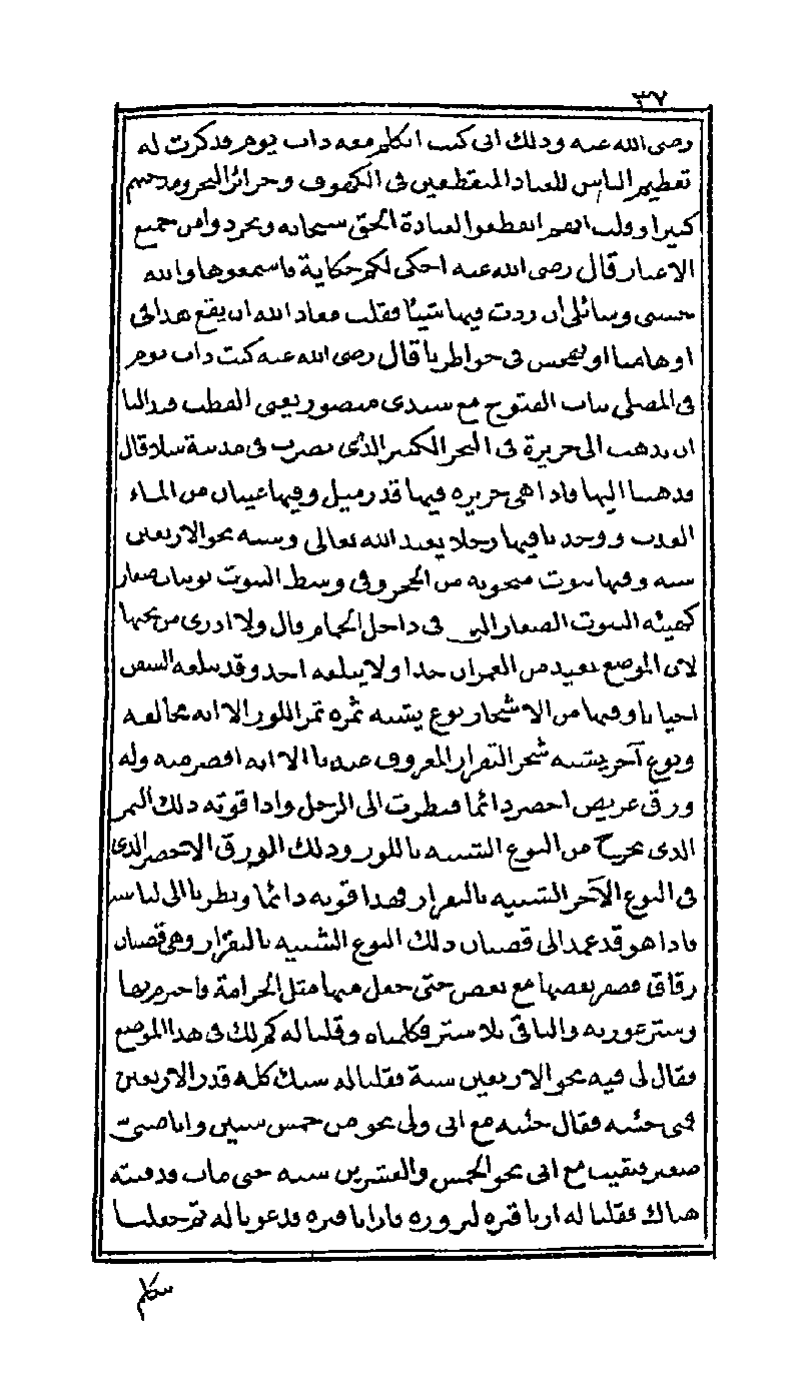 ٣٧
رضى الله عنه وذلك انى كنت اتكلم معه ذات يوم فذكرت له
تعظيم الناس للعباد المنقطعين فى الكهوف وجزائر البحر ومدحتهم
كثيرا وقلت انهم انقطعوا لعبادة الحق سبحانه وتجردوا من جميع
الاغيار قال رضى الله عنه احكى لكم حكاية فاسمعوها والله
حسبى وسائلى ان زدت فيها شيئا فقلت معاذ الله ان يقع هذا فى
اوهامنا او يهجس فى خواطرنا قال رضى الله عنه كنت ذات يوم
فى المصلى بباب الفتوح مع سيدى منصور يعنى القطب فبدا لنا
ان نذهب الى جزيرة فى البحر الكبير الذى يضرب فى مدينة سلا قال
فذهبنا اليها فاذا هى جزيرة فيها قدر ميل وفيها عينان من الماء
العذب ووجدنا فيها رجلا يعبد الله تعالى وسنه نحو الاربعين
سنه وفيها بيوت منحوته من الحجر وفى وسط البيوت بويتات صغار
كهيئه البيوت الصغار التى فى داخل الحمام قال ولا ادرى من نحتها
لان الموضع بعيد من العمران جدا ولا يبلغه احد وقد تبلغه السفن
احيانا وفيها من الاشجار نوع يشبه ثمره ثمر اللوز الا انه مخالفه
ونوع آخر يشبه شجر التفزار المعروف عندنا الا انه اقصر منه وله
ورق عريض اخضر دائما فنظرت الى الرجل واذا قوته ذلك الثمر
الذى يخرج من النوع الشبيه باللوز وذلك الورق الاخضر الذى
فى النوع الآخر الشبيه بالتفزار فهذا قوته دائما ونظرنا الى لباسه
فاذا هو قد عمد الى قضبان ذلك النوع الشبيه بالتفزار وهى قضبان
رقاق فضفر بعضها مع بعض حتى جعل منها مثل الحزامة فاحتزم بها
وستر عورته والباقى بلا ستر فكلمناه وقلنا له كم لك فى هذا الموضع
فقال لى فيه نحو الاربعين سنة فقلنا له سنك كله قدر الاربعين
فمتى جئته فقال جئته مع ابى ولى نحو من خمس سنين وانا صبى
صغير فبقيت مع ابى نحو الخمس والعشرين سنه حتى مات ودفنته
هناك فقلنا له ارنا قبره لنزوره فارانا قبره فدعونا له ثم جعلنا